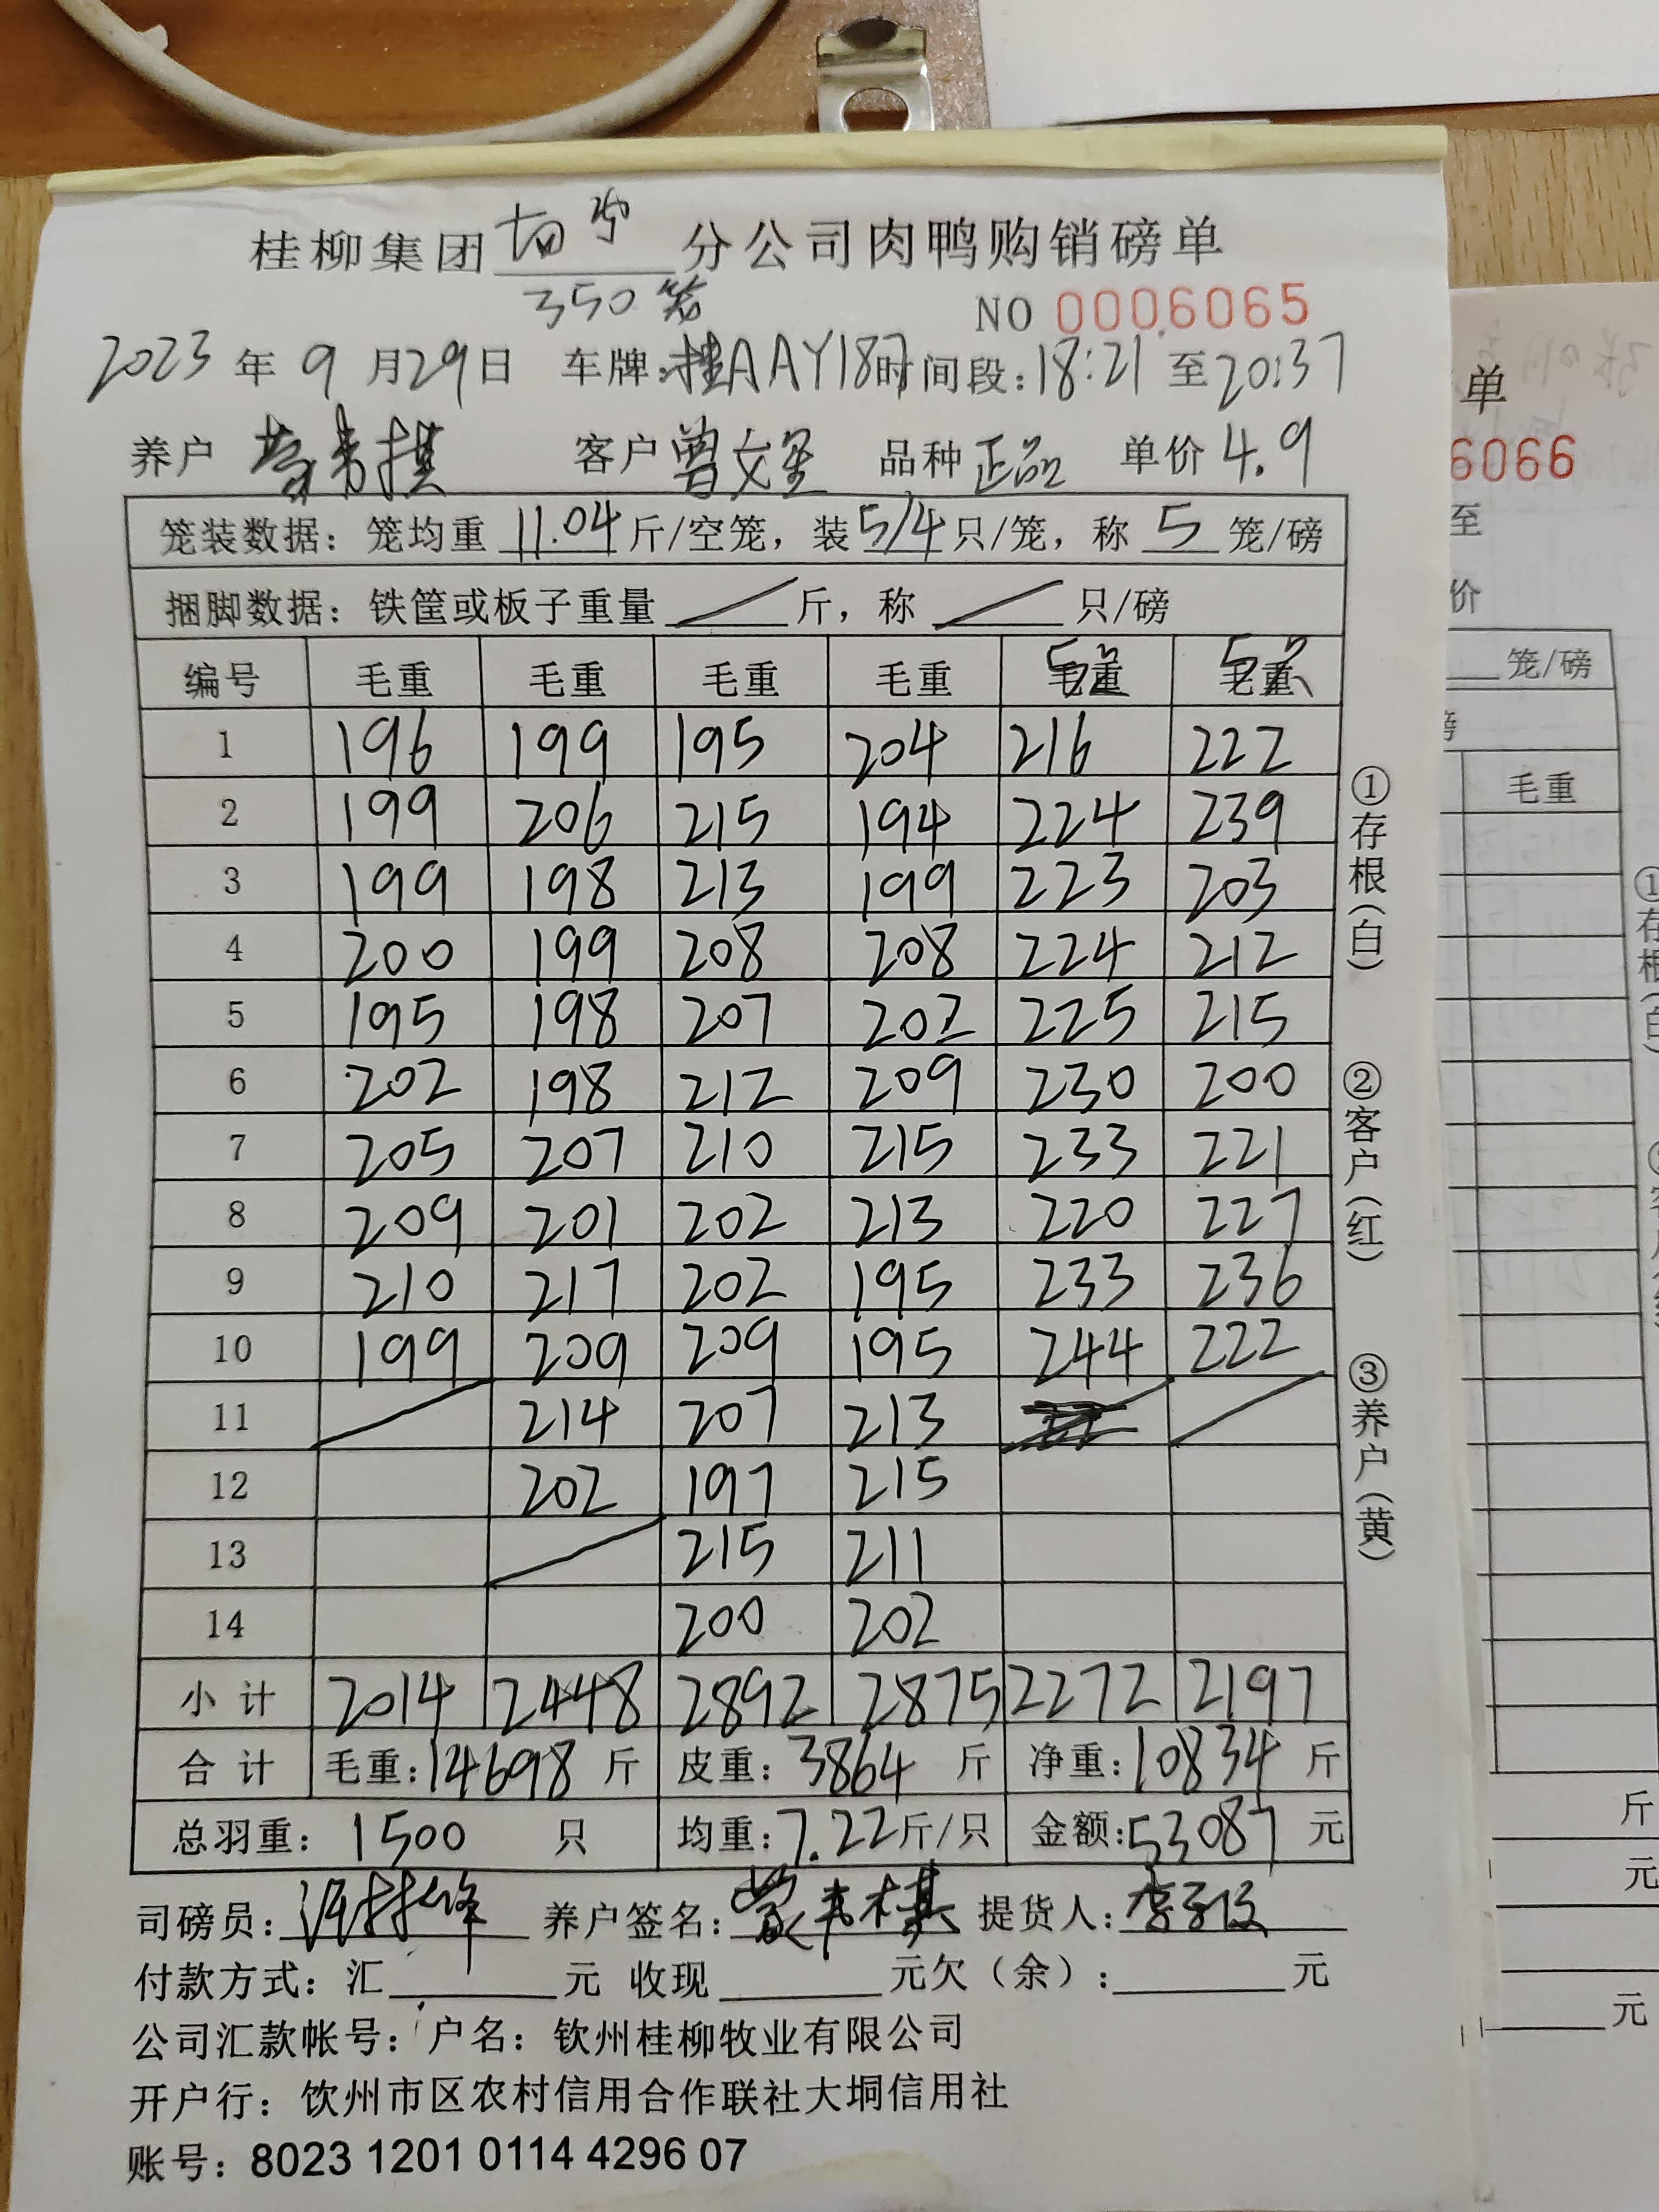 桂柳集团 分公司肉鸭购销磅单
350笼 NO 0006065
2023年9月29日 车牌:桂AAY187 时间段:18:21至20:37
养户 客户 曾文 品种 正品 单价 4.9
笼装数据: 笼均重 11.04 斤/空笼, 装 5/4 只/笼, 称 5 笼/磅
捆脚数据: 铁筐或板子重量 斤, 称 只/磅
编号 毛重 毛重 毛重 毛重 毛重 毛重
1 196 199 195 204 216 222
2 199 206 215 194 224 239
3 199 198 213 199 223 203
4 200 199 208 208 224 212
5 195 198 207 202 225 215
6 202 198 212 209 230 200
7 205 207 210 215 233 221
8 209 201 202 213 220 227
9 210 217 202 195 233 236
10 199 209 209 195 244 222
11 214 207 213
12 202 197 215
13 215 211
14 200 202
小计 2014 2448 2892 2875 2272 2197
合计 毛重:14698 斤 皮重:3864 斤 净重:10834 斤
总羽重: 1500 只 均重:7.22斤/只 金额:53087 元
司磅员: 养户签名: 提货人:
付款方式: 汇 元 收现 元欠(余): 元
公司汇款帐号: 户名: 钦州桂柳牧业有限公司
开户行: 饮州市区农村信用合作联社大垌信用社
账号: 8023 1201 0114 4296 07
①存根(白)
②客户(红)
③养户(黄)
单
6066
至
价
笼/磅
磅
毛重
斤
元
元